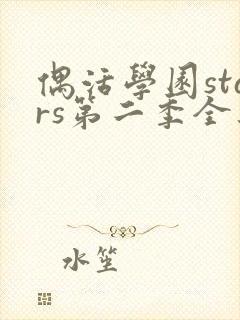 偶活學園sta
rs第二季全
水笙